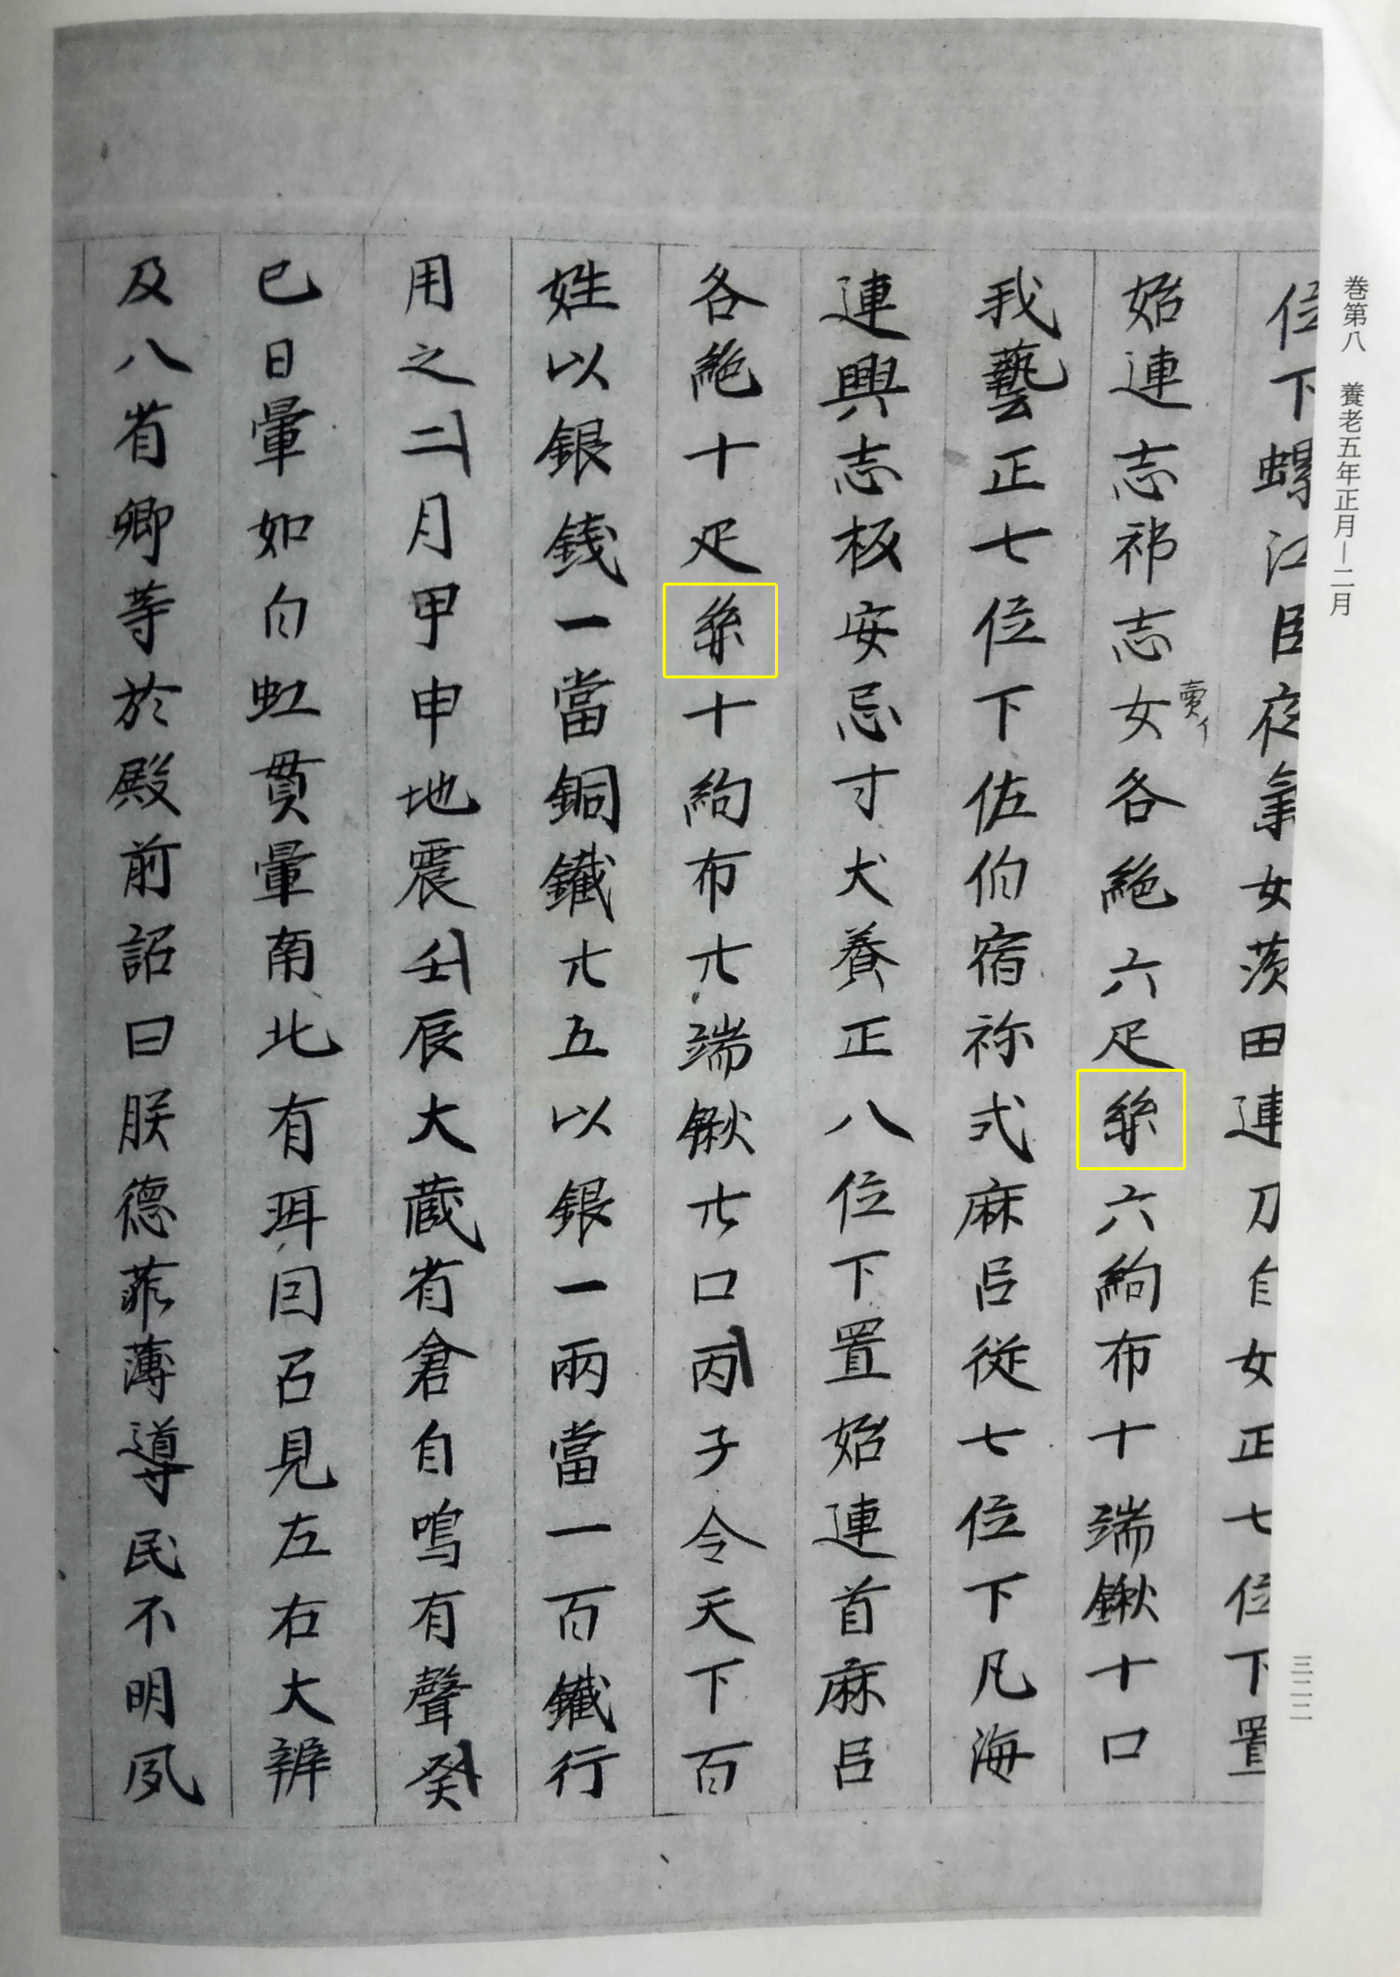 巻第八　養老五年正月―二月
三二二
位下螺江臣夜氣女茨田連刀自女正七位下置
始連志祁志女各絁六疋絲六絇布十端鍬十口
賣イ
我藝正七位下佐伯宿祢式麻呂従七位下凡海
連興志板安忌寸犬養正八位下置始連首麻呂
各絁十疋絲十絇布廿端鍬廿口丙子令天下百
姓以銀銭一當銅鐵廿五以銀一兩當一百鐵行
用之二月甲申地震壬辰大蔵省倉自鳴有聲癸
巳日暈如白虹貫暈南北有珥因召見左右大辨
及八省卿等於殿前詔曰朕德菲薄導民不明夙